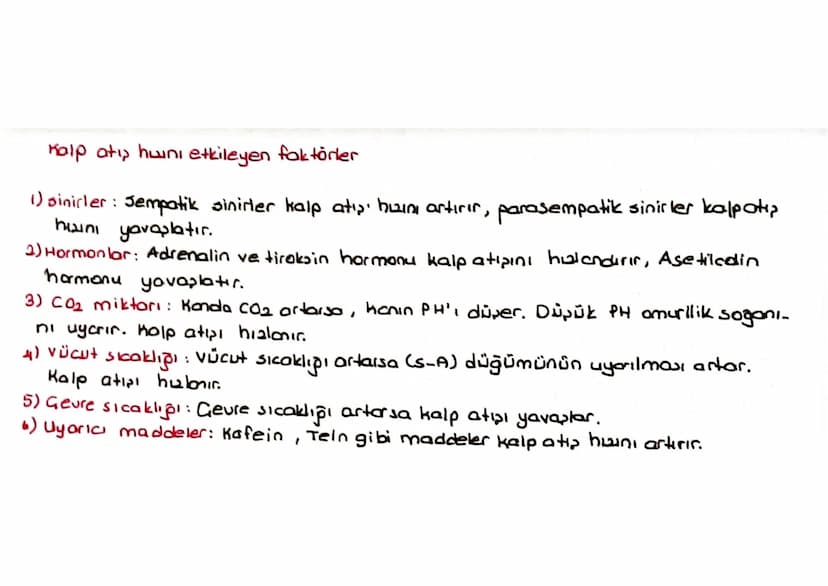 Kalp atış hızını etkileyen faktörler
1) Sinirler : Sempatik sinirler kalp atış hızını artırır, parasempatik sinirler kalp atış
hızını yavaşlatır.
2) Hormonlar : Adrenalin ve tiroksin hormonu kalp atışını hızlandırır, Asetilcolin
hormonu yavaşlatır.
3) CO2 miktarı : Kanda CO2 artarsa , kanın PH'ı düşer. Düşük PH omurilik soğanı-
nı uyarır. Kalp atışı hızlanır.
4) Vücut sıcaklığı : Vücut sıcaklığı artarsa (S-A) düğümünün uyarılması artar.
Kalp atışı hızlanır.
5) Çevre sıcaklığı : Çevre sıcaklığı artarsa kalp atışı yavaşlar.
6) Uyarıcı maddeler : Kafein , Tein gibi maddeler kalp atış hızını artırır.